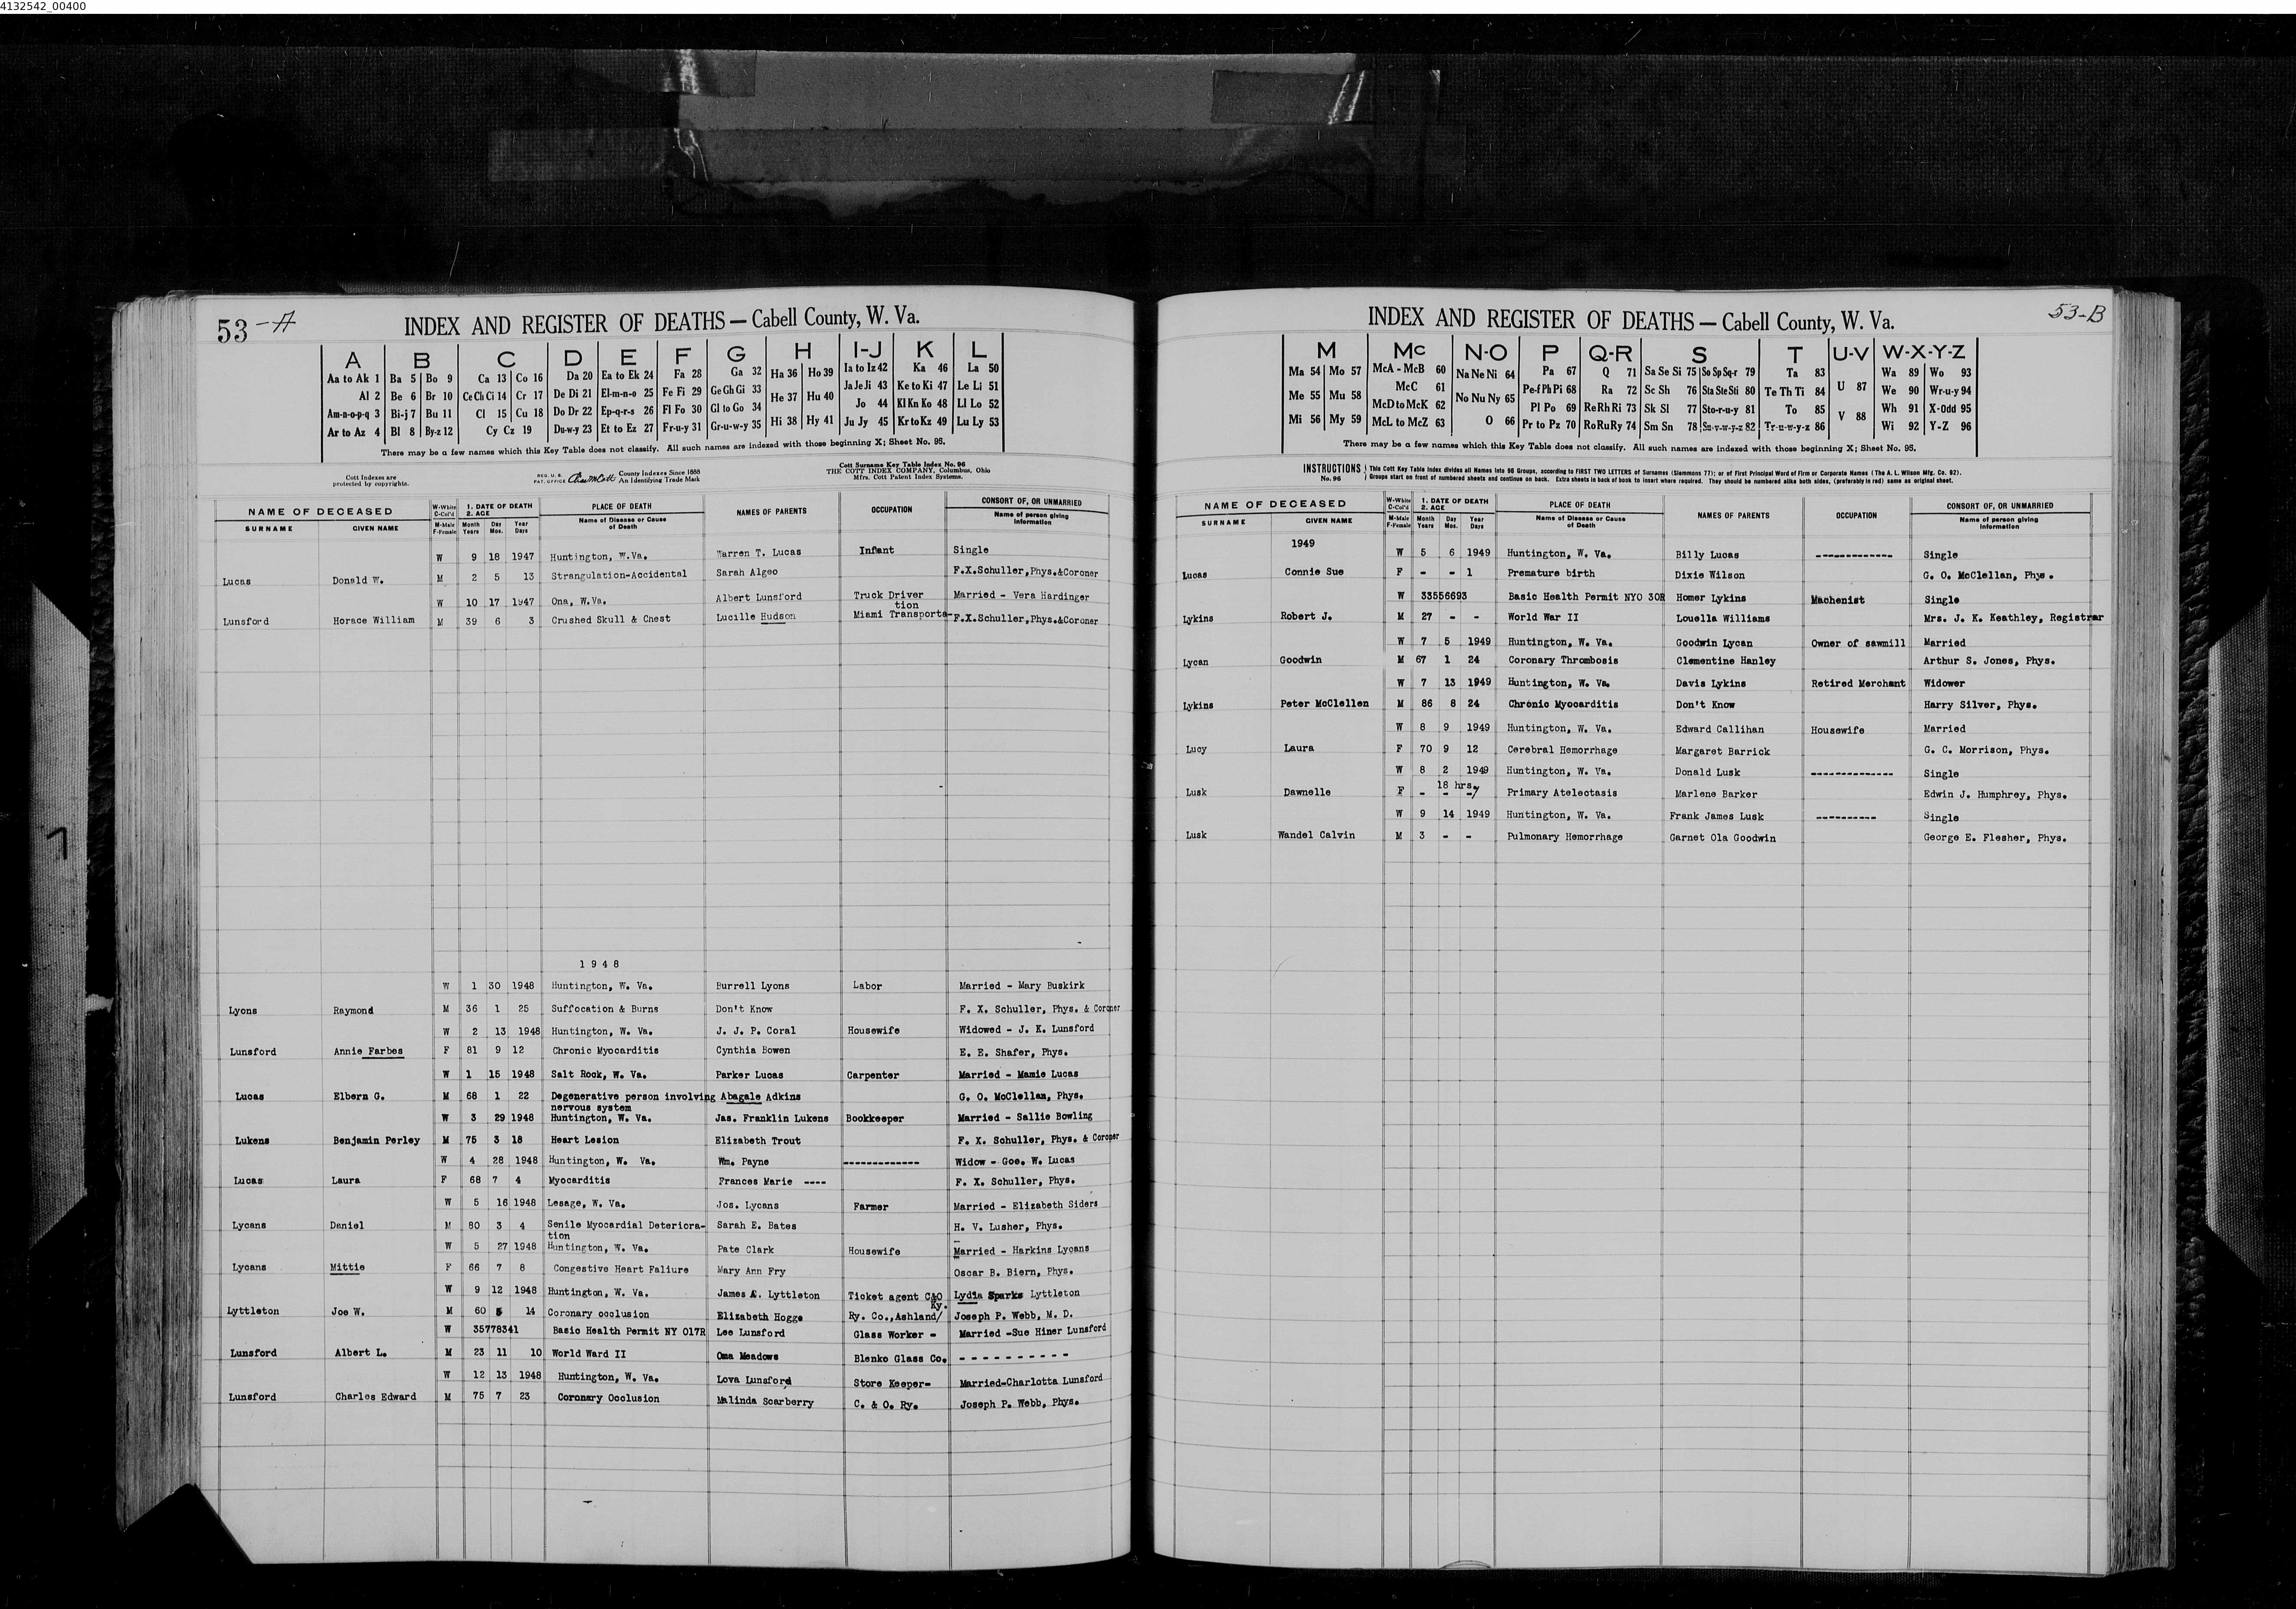 4132542_00400
53 -A
INDEX AND REGISTER OF DEATHS — Cabell County, W. Va.
A B C D E F G H I-J K L
Aa to Ak 1 Ba 5 Bo 9 Ca 13 Co 16 Da 20 Ea to Ek 24 Fa 28 Ga 32 Ha 36 Ho 39 Ia to Iz 42 Ka 46 La 50
Al 2 Be 6 Br 10 Ce Ch Ci 14 Cr 17 De Di 21 El-m-n-o 25 Fe Fi 29 Ge Gh Gi 33 He 37 Hu 40 Ja Je Ji 43 Ke to Ki 47 Le Li 51
Am-n-o-p-q 3 Bi-j 7 Bu 11 Cl 15 Cu 18 Do Dr 22 Ep-q-r-s 26 Fl Fo 30 Gl to Go 34 Jo 44 Kl Kn Ko 48 Ll Lo 52
Ar to Az 4 Bl 8 By-z 12 Cy Cz 19 Du-w-y 23 Et to Ez 27 Fr-u-y 31 Gr-u-w-y 35 Hi 38 Hy 41 Ju Jy 45 Kr to Kz 49 Lu Ly 53
There may be a few names which this Key Table does not classify. All such names are indexed with those beginning X; Sheet No. 95.
Cott Indexes are
protected by copyrights.
REG. U. S.
PAT. OFFICE
County Indexes Since 1888
An Identifying Trade Mark
Cott Surname Key Table Index No. 96
THE COTT INDEX COMPANY, Columbus, Ohio
Mfrs. Cott Patent Index Systems.
NAME OF DECEASED
SURNAME GIVEN NAME
W-White
C-Col'd
M-Male
F-Female
1. DATE OF DEATH
2. AGE
Month Day Year
Years Mos. Days
PLACE OF DEATH
Name of Disease or Cause
of Death
NAMES OF PARENTS
OCCUPATION
CONSORT OF, OR UNMARRIED
Name of person giving
information
W 9 18 1947 Huntington, W.Va. Warren T. Lucas Infant Single
Lucas Donald W. M 2 5 13 Strangulation-Accidental Sarah Algeo F.X.Schuller,Phys.&Coroner
W 10 17 1947 Ona, W.Va. Albert Lunsford Truck Driver Married - Vera Hardinger
tion
Lunsford Horace William M 39 6 3 Crushed Skull & Chest Lucille Hudson Miami Transporta- F.X.Schuller,Phys.&Coroner
1 9 4 8
W 1 30 1948 Huntington, W. Va. Burrell Lyons Labor Married - Mary Buskirk
Lyons Raymond M 36 1 25 Suffocation & Burns Don't Know F. X. Schuller, Phys. & Coroner
W 2 13 1948 Huntington, W. Va. J. J. P. Coral Housewife Widowed - J. K. Lunsford
Lunsford Annie Farbes F 81 9 12 Chronic Myocarditis Cynthia Bowen E. E. Shafer, Phys.
W 1 15 1948 Salt Rock, W. Va. Parker Lucas Carpenter Married - Mamie Lucas
Lucas Elbern G. M 68 1 22 Degenerative person involving Abagale Adkins G. O. McClellan, Phys.
nervous system
W 3 29 1948 Huntington, W. Va. Jas. Franklin Lukens Bookkeeper Married - Sallie Bowling
Lukens Benjamin Perley M 75 3 18 Heart Lesion Elizabeth Trout F. X. Schuller, Phys. & Coroner
W 4 28 1948 Huntington, W. Va. Wm. Payne ------------- Widow - Goe. W. Lucas
Lucas Laura F 68 7 4 Myocarditis Frances Marie ---- F. X. Schuller, Phys.
W 5 16 1948 Lesage, W. Va. Jos. Lycans Farmer Married - Elizabeth Siders
Lycans Daniel M 80 3 4 Senile Myocardial Deteriora- Sarah E. Bates H. V. Lusher, Phys.
tion
W 5 27 1948 Huntington, W. Va. Pate Clark Housewife Married - Harkins Lycans
Lycans Mittie F 66 7 8 Congestive Heart Faliure Mary Ann Fry Oscar B. Biern, Phys.
W 9 12 1948 Huntington, W. Va. James E. Lyttleton Ticket agent C&O Lydia Sparks Lyttleton
Ky.
Lyttleton Joe W. M 60 5 14 Coronary occlusion Elizabeth Hogge Ry. Co.,Ashland/ Joseph P. Webb, M. D.
W 35778341 Basic Health Permit NY 017R Lee Lunsford Glass Worker - Married -Sue Hiner Lunsford
Lunsford Albert L. M 23 11 10 World Ward II Oma Meadows Blenko Glass Co. - - - - - - - - - -
W 12 13 1948 Huntington, W. Va. Lova Lunsford Store Keeper- Married-Charlotta Lunsford
Lunsford Charles Edward M 75 7 23 Coronary Occlusion Malinda Scarberry C. & O. Ry. Joseph P. Webb, Phys.
53-B
INDEX AND REGISTER OF DEATHS — Cabell County, W. Va.
M Mc N-O P Q-R S T U-V W-X-Y-Z
Ma 54 Mo 57 McA - McB 60 Na Ne Ni 64 Pa 67 Q 71 Sa Se Si 75 So Sp Sq-r 79 Ta 83 U 87 Wa 89 Wo 93
Me 55 Mu 58 McC 61 No Nu Ny 65 Pe-f Ph Pi 68 Ra 72 Sc Sh 76 Sta Ste Sti 80 Te Th Ti 84 We 90 Wr-u-y 94
McD to McK 62 Pl Po 69 Re Rh Ri 73 Sk Sl 77 Sto-r-u-y 81 To 85 V 88 Wh 91 X-Odd 95
Mi 56 My 59 McL to McZ 63 O 66 Pr to Pz 70 Ro Ru Ry 74 Sm Sn 78 Su-v-w-y-z 82 Tr-u-w-y-z 86 Wi 92 Y-Z 96
There may be a few names which this Key Table does not classify. All such names are indexed with those beginning X; Sheet No. 95.
INSTRUCTIONS No. 96
This Cott Key Table Index divides all Names into 96 Groups, according to FIRST TWO LETTERS of Surnames (Slemmons 77); or of First Principal Word of Firm or Corporate Names (The A. L. Wilson Mfg. Co. 92).
Groups start on front of numbered sheets and continue on back. Extra sheets in back of book to insert where required. They should be numbered alike both sides, (preferably in red) same as original sheet.
NAME OF DECEASED
SURNAME GIVEN NAME
W-White
C-Col'd
M-Male
F-Female
1. DATE OF DEATH
2. AGE
Month Day Year
Years Mos. Days
PLACE OF DEATH
Name of Disease or Cause
of Death
NAMES OF PARENTS
OCCUPATION
CONSORT OF, OR UNMARRIED
Name of person giving
information
1949
W 5 6 1949 Huntington, W. Va. Billy Lucas ------------- Single
Lucas Connie Sue F - - 1 Premature birth Dixie Wilson G. O. McClellan, Phys.
W 33556693 Basic Health Permit NYO 30R Homer Lykins Machenist Single
Lykins Robert J. M 27 - - World War II Louella Williams Mrs. J. K. Keathley, Registrar
W 7 5 1949 Huntington, W. Va. Goodwin Lycan Owner of sawmill Married
Lycan Goodwin M 67 1 24 Coronary Thrombosis Clementine Hanley Arthur S. Jones, Phys.
W 7 13 1949 Huntington, W. Va. Davis Lykins Retired Merchant Widower
Lykins Peter McClellen M 86 8 24 Chronic Myocarditis Don't Know Harry Silver, Phys.
W 8 9 1949 Huntington, W. Va. Edward Callihan Housewife Married
Lucy Laura F 70 9 12 Cerebral Hemorrhage Margaret Barrick G. C. Morrison, Phys.
W 8 2 1949 Huntington, W. Va. Donald Lusk -------------- Single
18 hrs.
Lusk Dawnelle F - - - Primary Atelectasis Marlene Barker Edwin J. Humphrey, Phys.
W 9 14 1949 Huntington, W. Va. Frank James Lusk ---------- Single
Lusk Wandel Calvin M 3 - - Pulmonary Hemorrhage Garnet Ola Goodwin George E. Flesher, Phys.